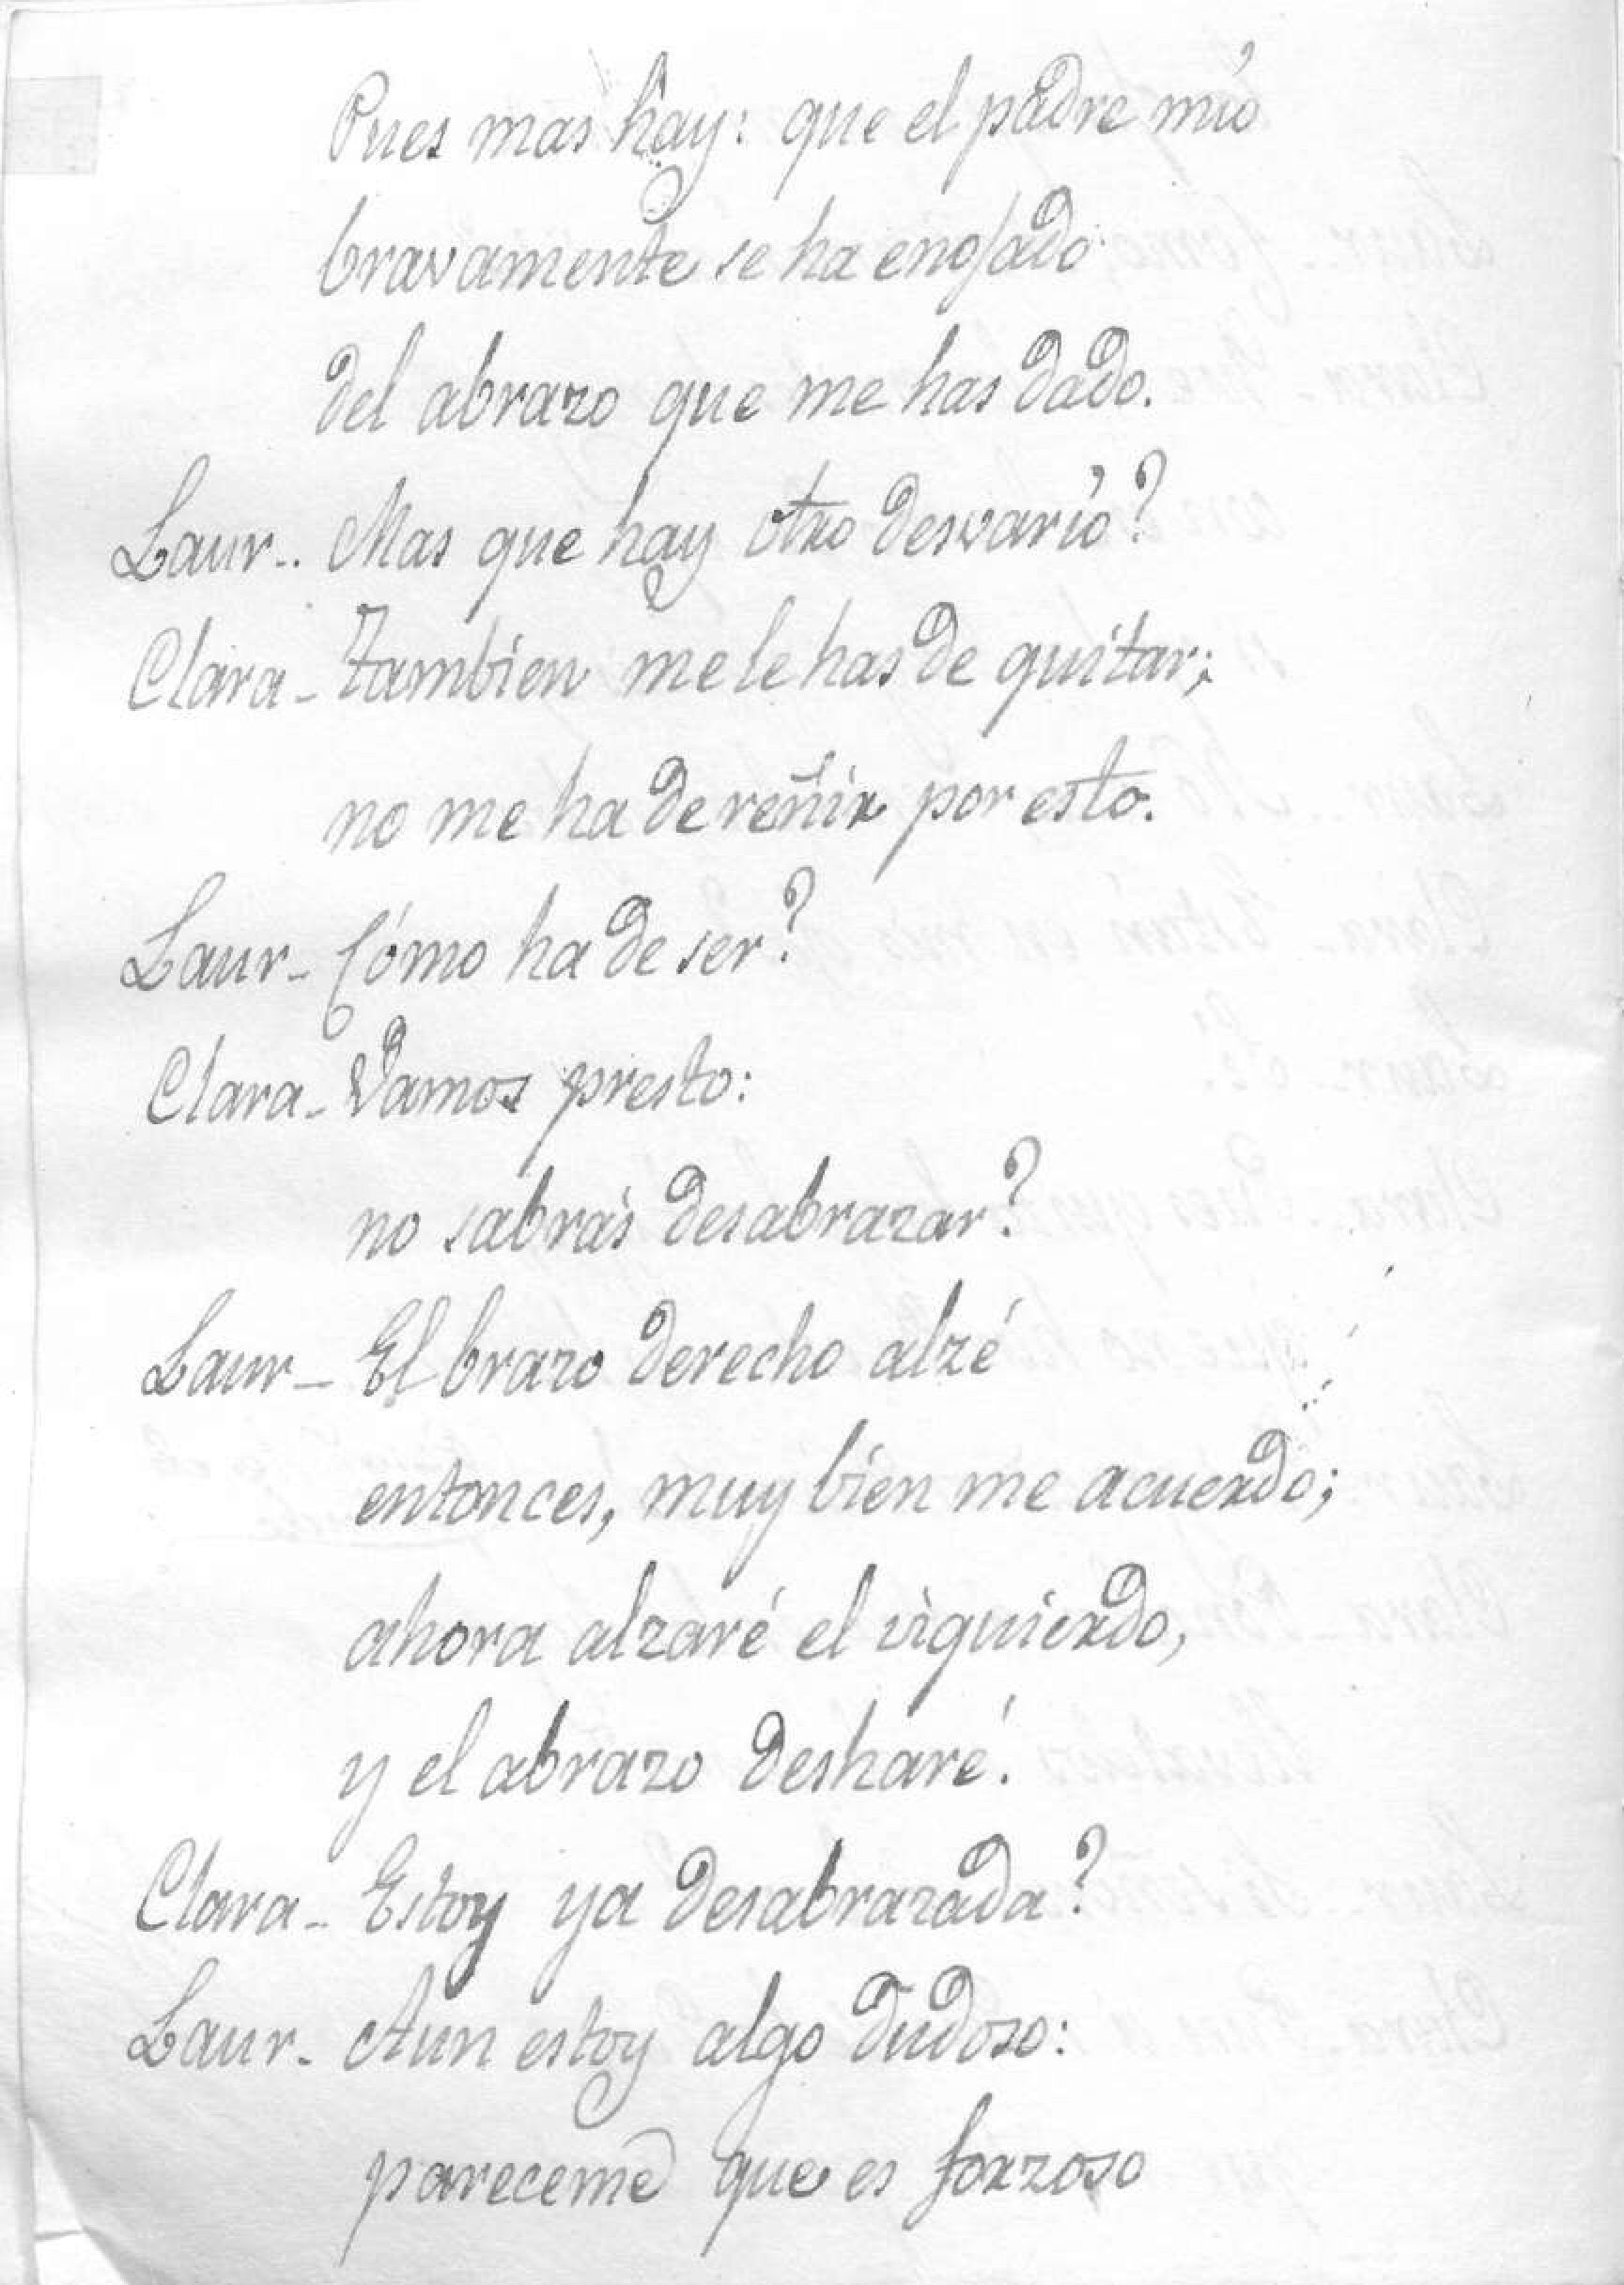 Pues mas hay: que el padre mío
bravamente se ha enojado
del abrazo que me has dado.
Laur.. Mas que hay otro desvarío?
Clara - Tambien me le has de quitar;
no me ha de reñir por esto.
Laur - Cómo ha de ser?
Clara - Vamos presto:
no sabrás desabrazar?
Laur - El brazo derecho alzé
entonces, muy bien me acuerdo;
ahora alzaré el izquierdo,
y el abrazo desharé.
Clara - Estoy ya desabrazada?
Laur - Aun estoy algo dudoso:
pareceme que es forzoso